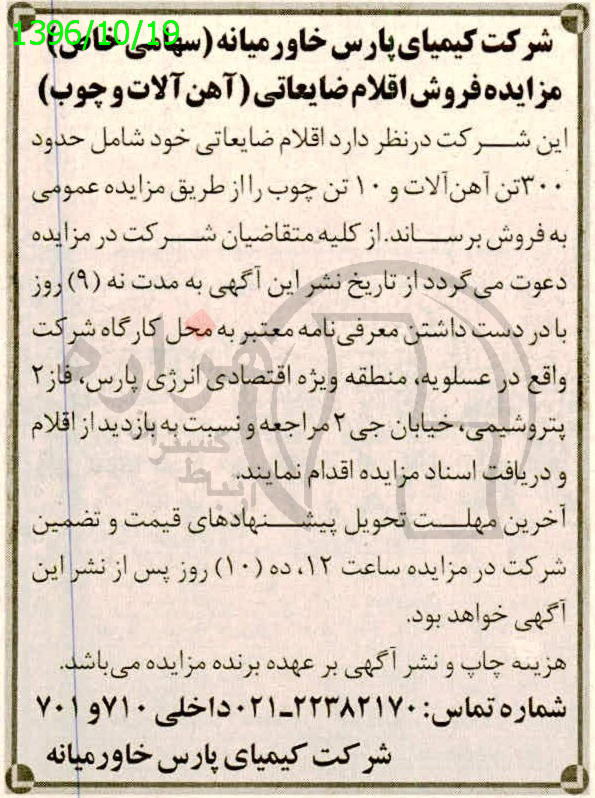 1396/10/19
شرکت کیمیای پارس خاورمیانه (سهامی خاص)
مزایده فروش اقلام ضایعاتی (آهن آلات و چوب)
این شرکت درنظر دارد اقلام ضایعاتی خود شامل حدود
۳۰۰تن آهن‌آلات و ۱۰ تن چوب را از طریق مزایده عمومی
به فروش برساند. از کلیه متقاضیان شرکت در مزایده
دعوت می‌گردد از تاریخ نشر این آگهی به مدت نه (۹) روز
با در دست داشتن معرفی‌نامه معتبر به محل کارگاه شرکت
واقع در عسلویه، منطقه ویژه اقتصادی انرژی پارس، فاز۲
پتروشیمی، خیابان جی۲ مراجعه و نسبت به بازدید از اقلام
و دریافت اسناد مزایده اقدام نمایند.
آخرین مهلت تحویل پیشنهادهای قیمت و تضمین
شرکت در مزایده ساعت ۱۲، ده (۱۰) روز پس از نشر این
آگهی خواهد بود.
هزینه چاپ و نشر آگهی بر عهده برنده مزایده می‌باشد.
شماره تماس: ۲۲۳۸۲۱۷۰-۰۲۱ داخلی ۷۱۰ و ۷۰۱
شرکت کیمیای پارس خاورمیانه
هزاره